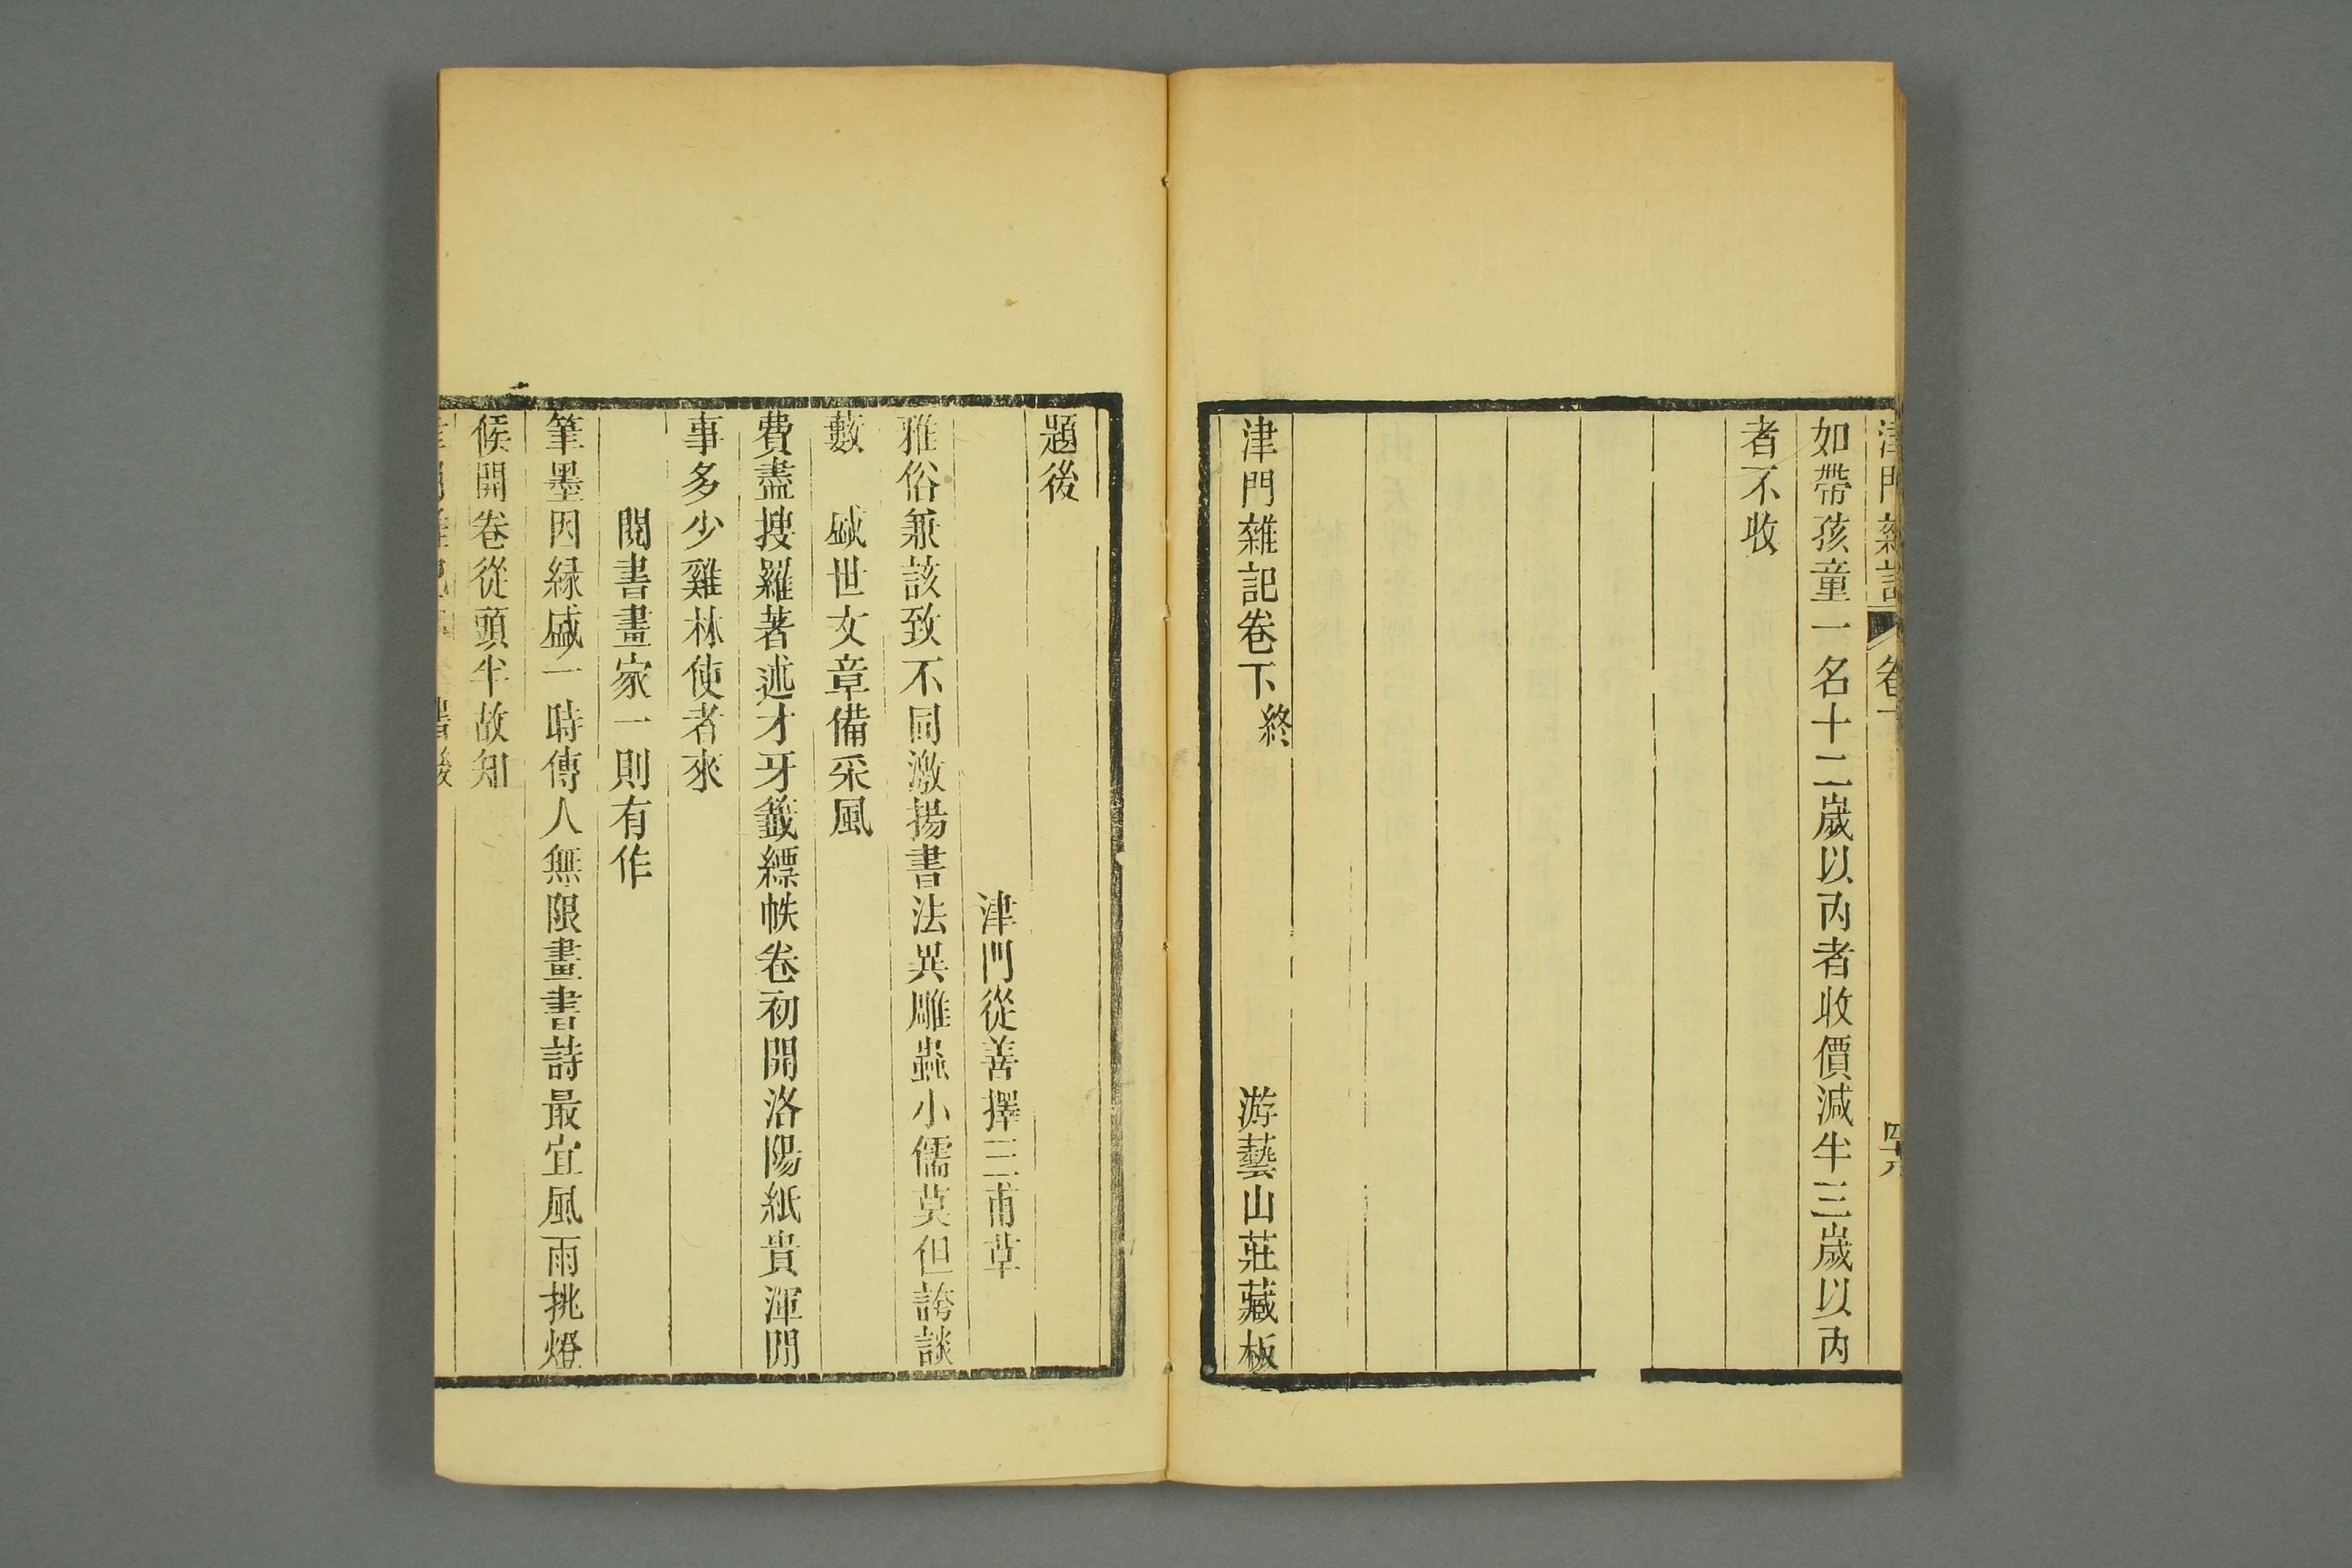 津門雜記 卷下 四六
如帶孩童一名十二歲以內者收價減半三歲以內
者不收
津門雜記卷下終 游藝山莊藏板
題後
津門從善擇三甫草
雅俗兼該致不同激揚書法異雕蟲小儒莫但誇談
藪 盛世文章備采風
費盡搜羅著述才牙籤縹帙卷初開洛陽紙貴渾閒
事多少雞林使者來
閱書畫家一則有作
筆墨因緣盛一時傳人無限畫書詩最宜風雨挑燈
候開卷從頭半故知